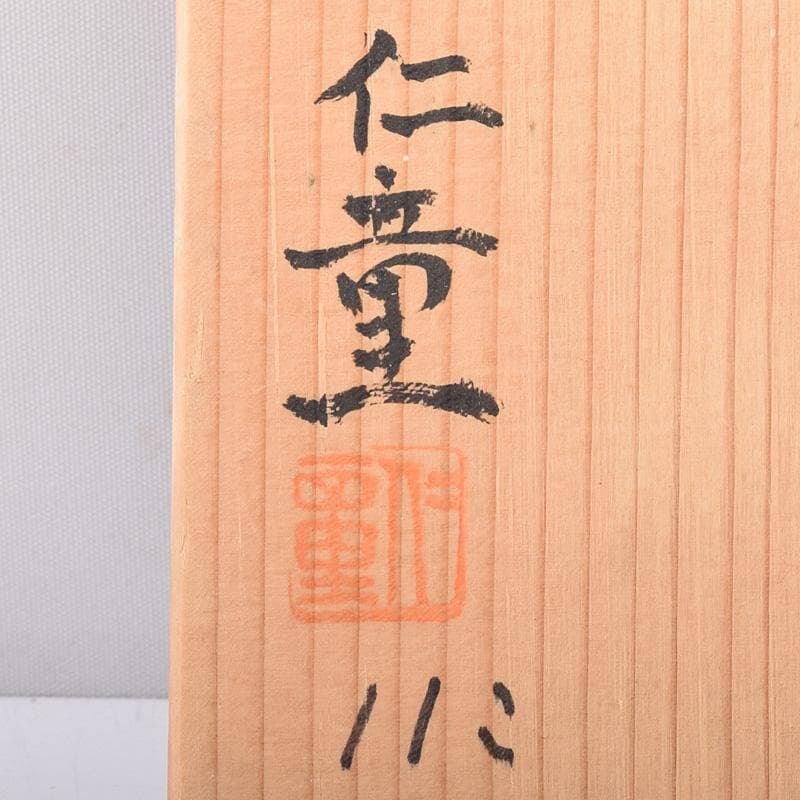 仁童
仁童